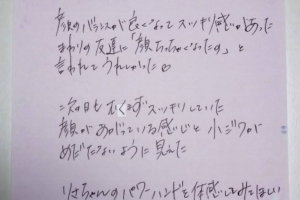 顔のバランスが良くなってスッキリ感があった
まわりの友達に「顔ちっちゃくなったの」と
言われてうれしかった♡
次の日もむくまずスッキリしていた
顔があがっている感じと小ジワが
めだたないように見えた
りさちゃんのパワーハンドを体感してみてほしい